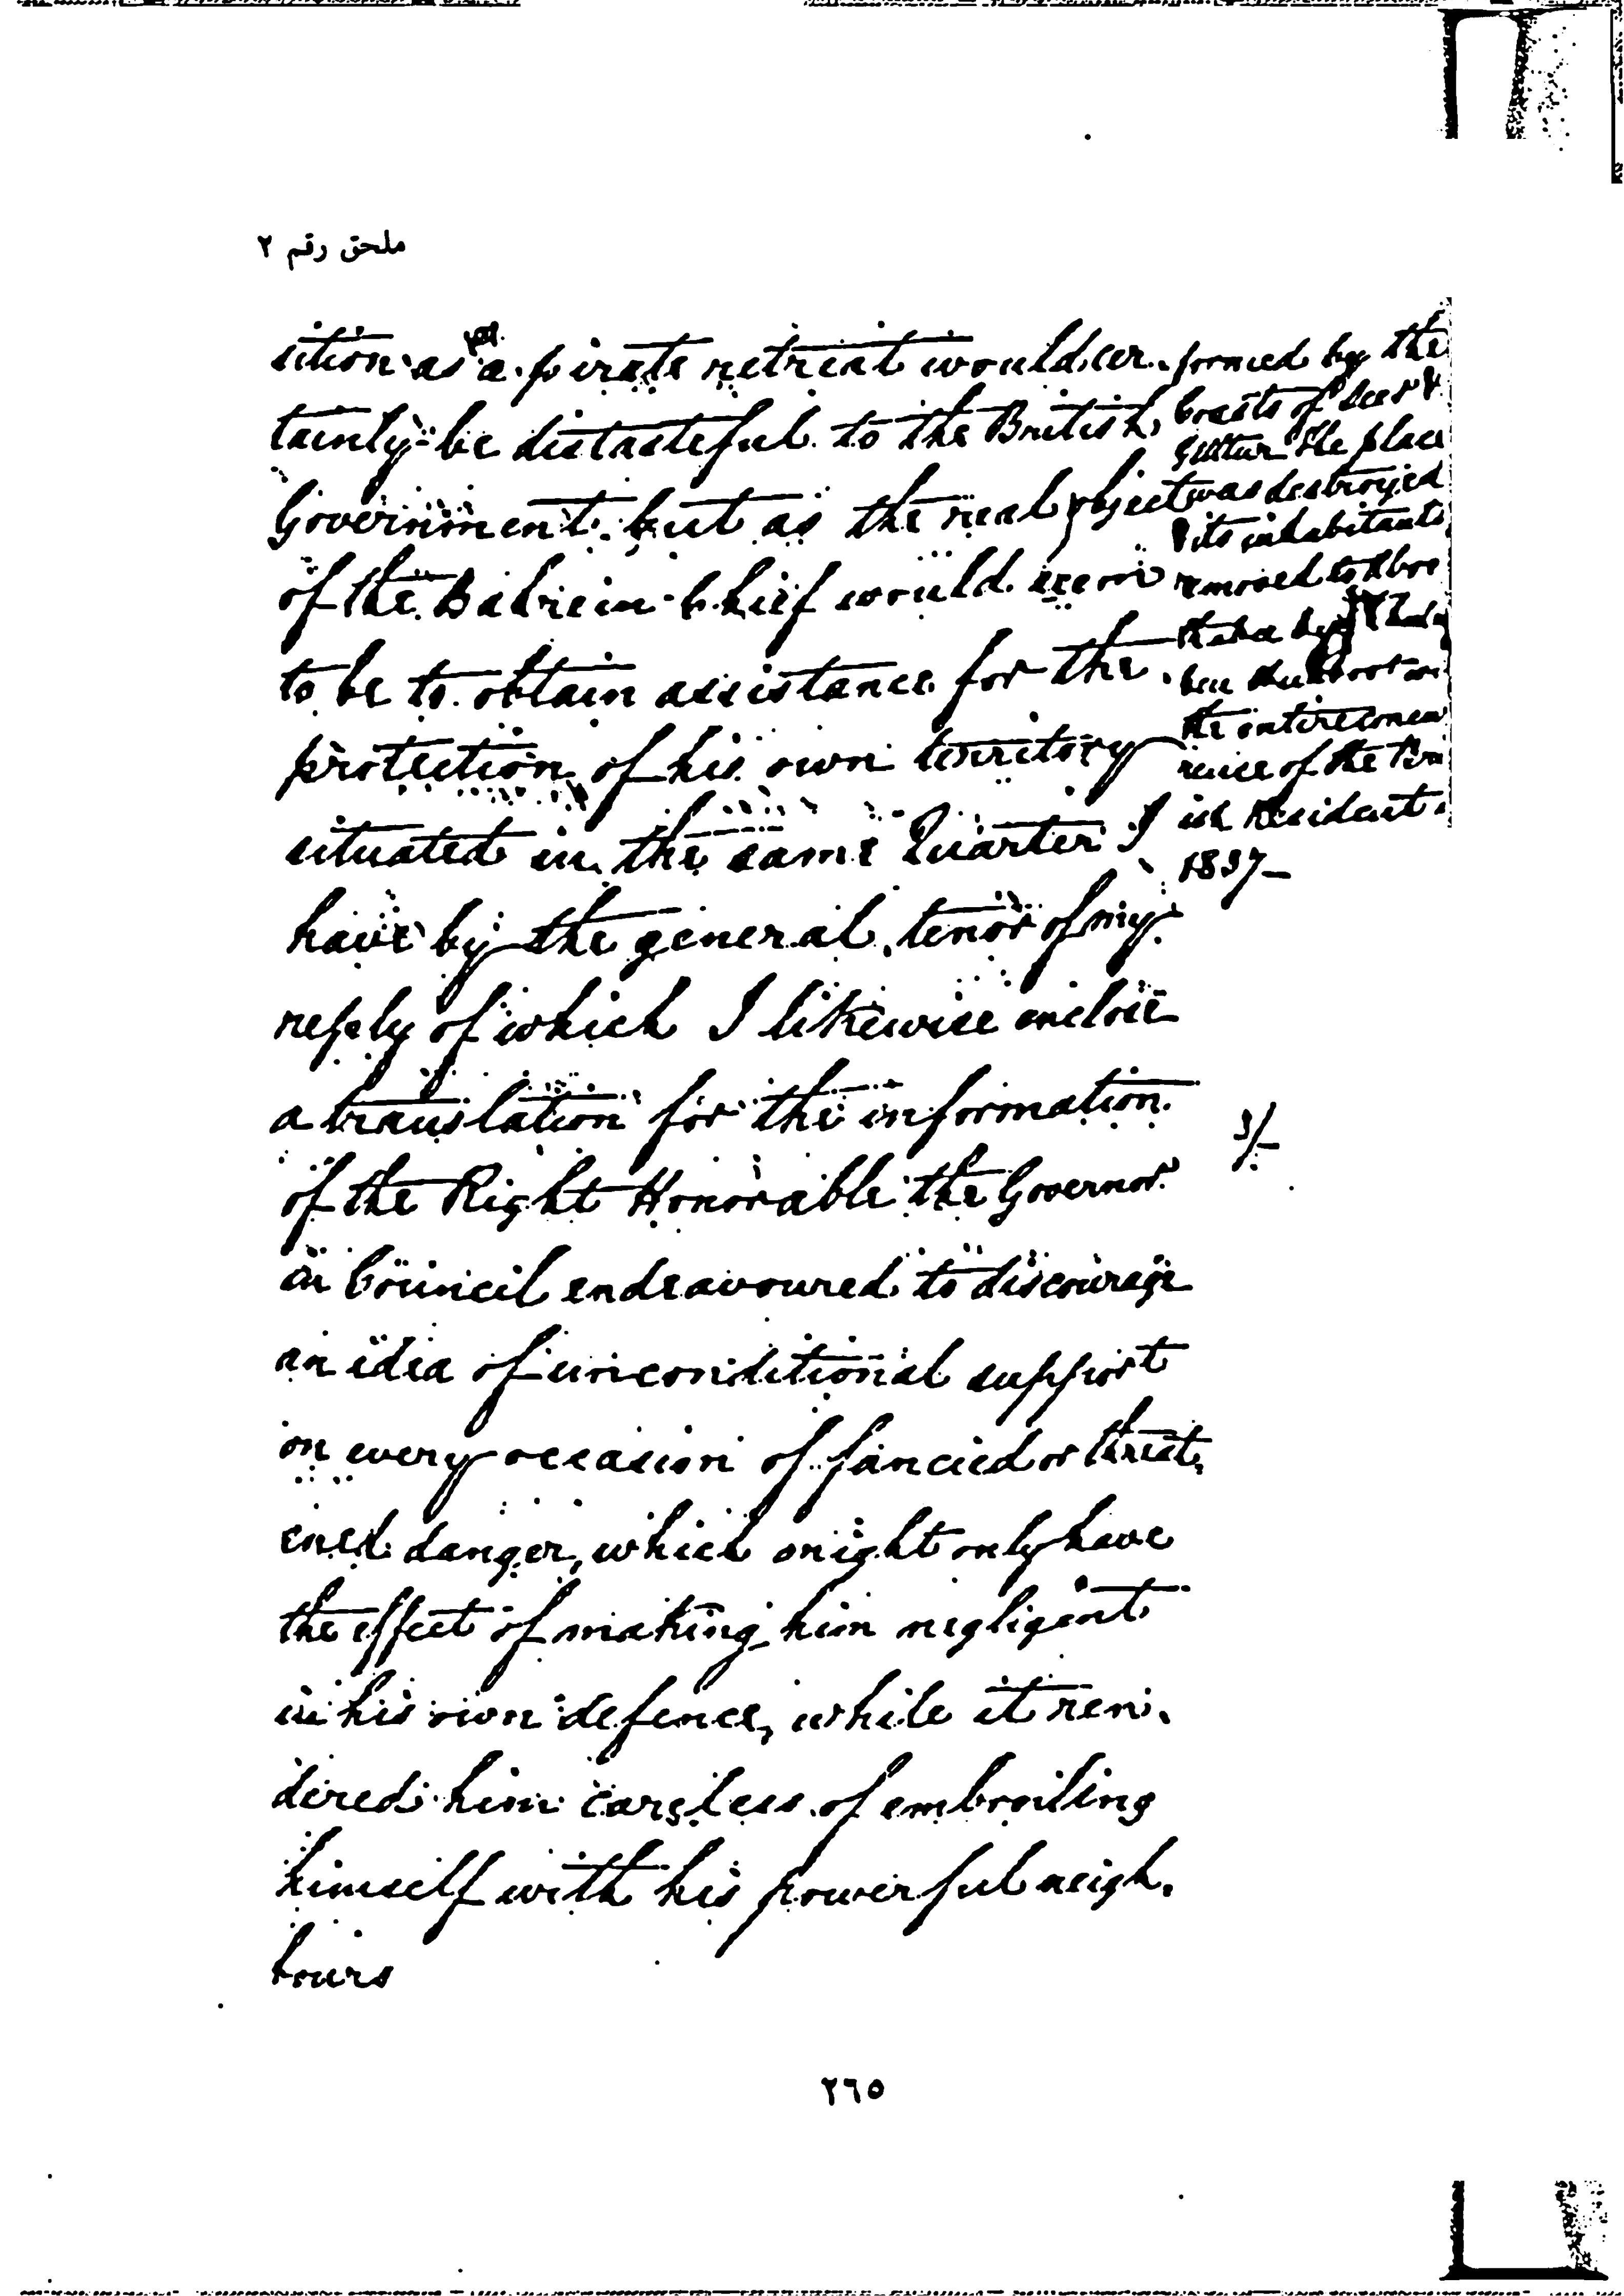 ملحق رقم ٢
sition as a pirate retreat would cer-
tainly be distasteful to the British
Government, but as the real object
of the Bahrein Chief would seem
to be to obtain assistance for the
protection of his own territory
situated in the same Quarter I
have by the general tenor of my
reply of which I likewise enclose
a translation for the information
of the Right Honorable the Governor
in Council endeavoured to discourage
an idea of unconditional support
on every occasion of fancied or threat-
ened danger, which might only have
the effect of making him negligent
in his own defence, while it ren-
dered him careless of embroiling
himself with his powerful neigh-
bours
formed by the
the place
was destroyed
its inhabitants
removed to
the entire concur
rence of the Brit
ish Resident.
1837-
3/-
٢٦٥